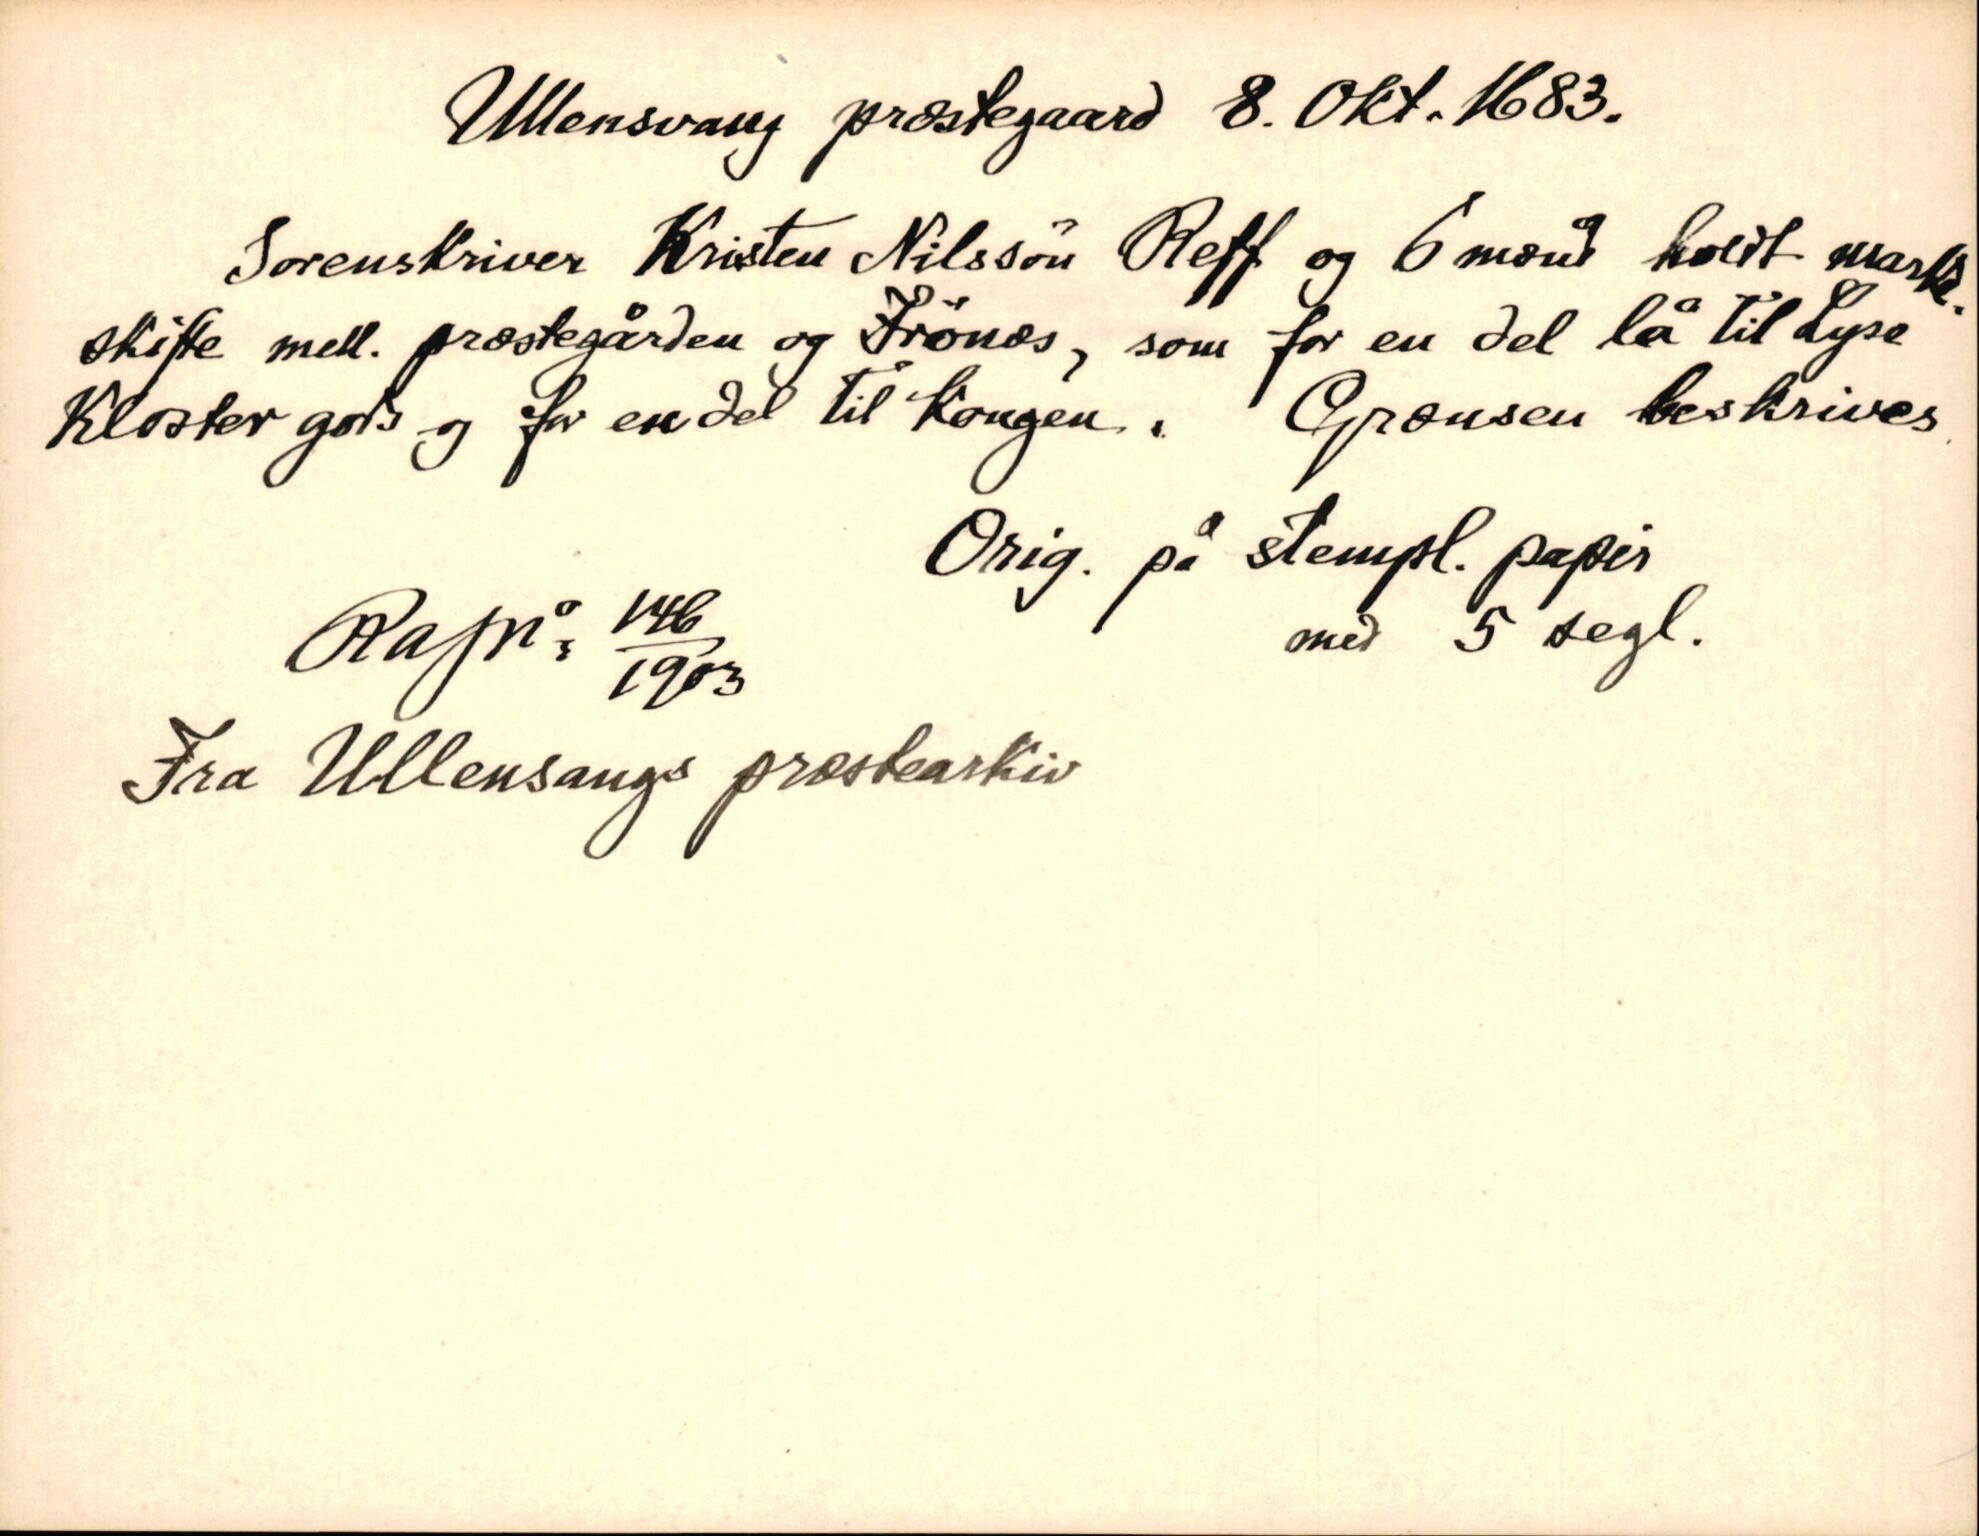 Ullensvang præstegaard 8. Okt. 1683.
Sorenskriver Kristen Nilssön Reff og 6 mænd holdt marke-
skifte mell. præstegården og Frönæs, som for en del lå til Lyse
Kloster gods og for en del til kongen. Grænsen beskrives
Orig. på stempl. papir
med 5 segl.
Raft no: 146/1903
Fra Ullensangs præstearkiv